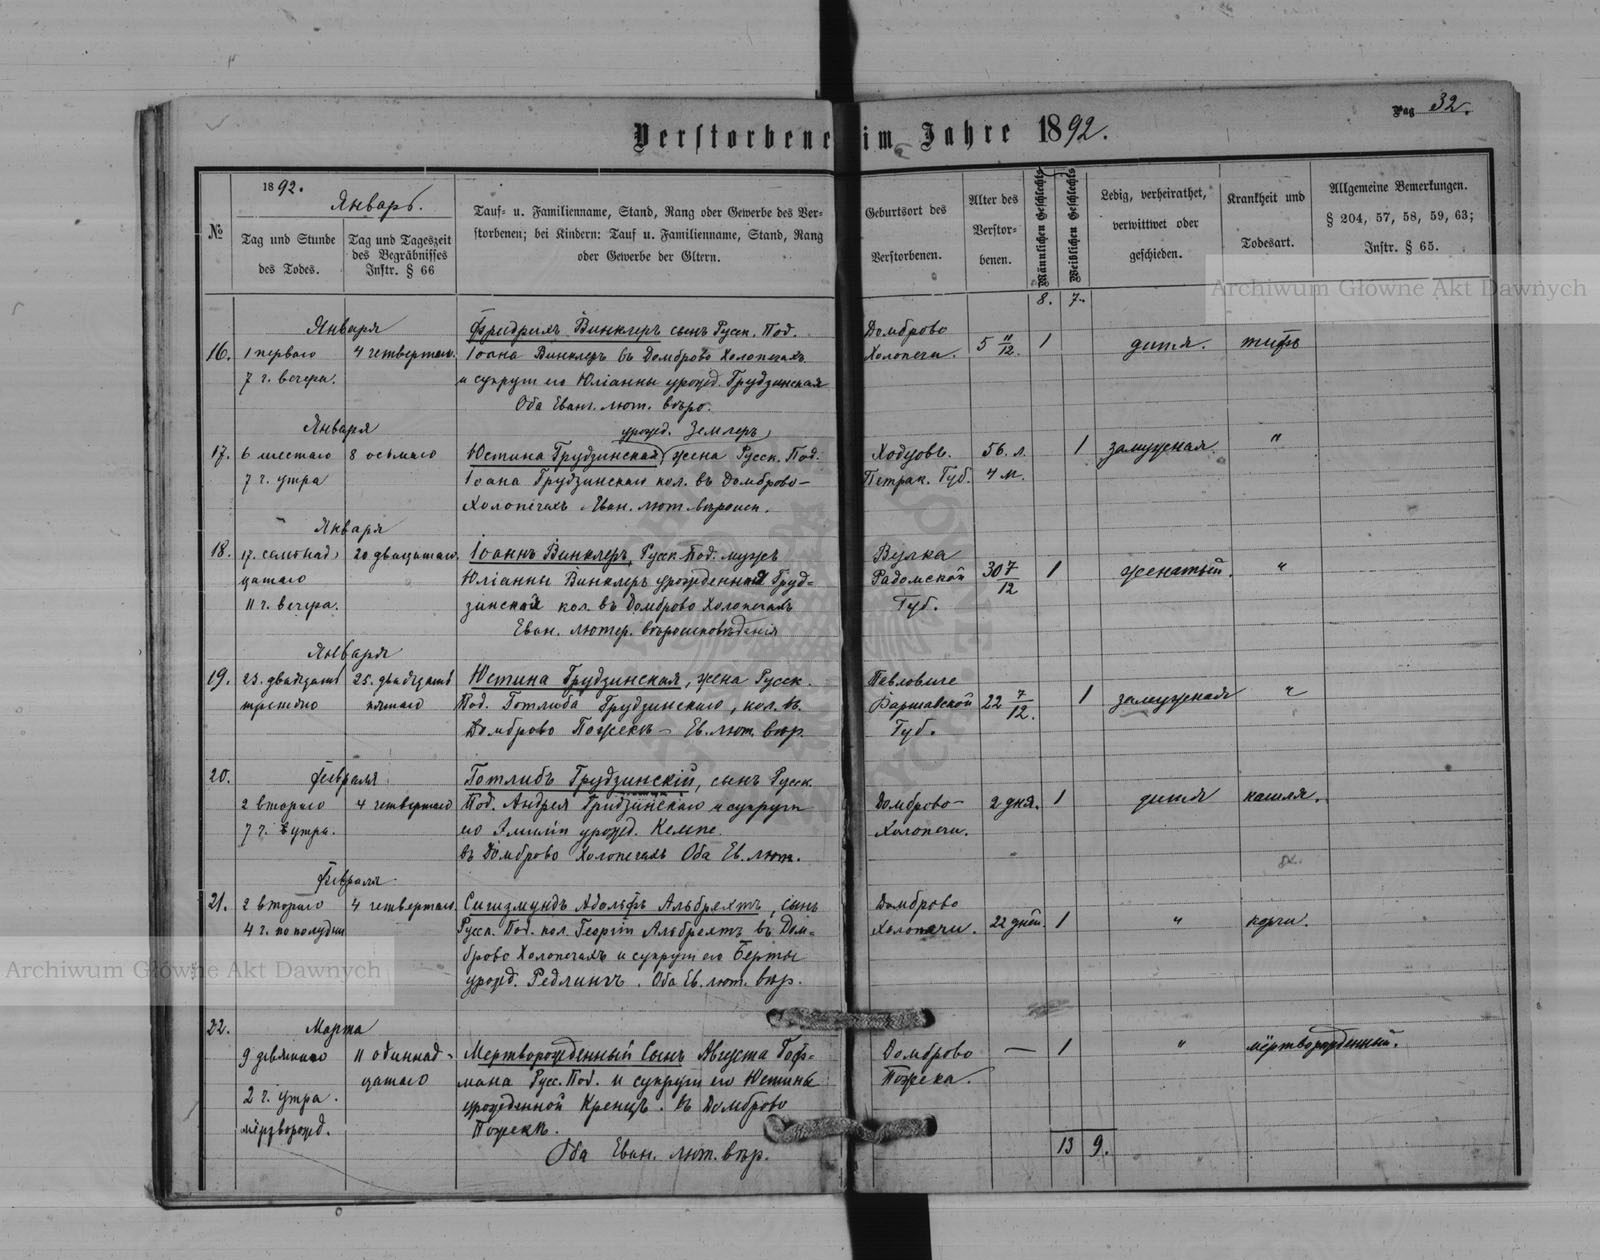 Pag 32.
Verstorbene im Jahre 1892.
№
1892. Январь.
Tag und Stunde des Todes.
Tag und Tageszeit des Begräbnisses Instr. § 66
Tauf- u. Familienname, Stand, Rang oder Gewerbe des Ver-
storbenen; bei Kindern: Tauf u. Familienname, Stand, Rang
oder Gewerbe der Eltern.
Geburtsort des Verstorbenen.
Alter des Verstor-
benen.
Männlichen Geschlechts
Weiblichen Geschlechts
Ledig, verheirathet,
verwittwet oder
geschieden.
Krankheit und
Todesart.
Allgemeine Bemerkungen.
§ 204, 57, 58, 59, 63;
Instr. § 65.
Archiwum Główne Akt Dawnych
8. 7.
Января
16. 1 перваго 4 четвертаго.
7 г. вечера.
Фридрихъ Винклеръ сынъ Русск. Под.
Іоана Винклеръ въ Домброво Холопечахъ
и супруги его Юліанны урожд. Грудзинская
Оба Еванг. лют. вѣро.
Домброво
Холопечи. 5 11/12. 1 дитя. тифъ
Января
17. 6 шестаго 8 осьмаго
7 г. утра
урожд. Землеръ
Юстина Грудзинская жена Русск. Под.
Іоана Грудзинскаго кол. въ Домброво-
Холопечахъ Еван. лют.
Ходцовъ. 56. л. 1 замужная. "
Петрак. Губ. 4 м.
Января
18. 17. семнад 20 двацатаго.
цатаго
11 г. вечера.
Іоаннъ Винклеръ, Русск. Под. мужъ
Юліанны Винклеръ урожденная Груд-
зинской кол. въ Домброво Холопечахъ
Еван. лютер. вѣроисповѣданія
Вулка
Радомской 30 7/12 1 женатый. "
Губ.
Января
19. 23. двадцать 25. двадцать
третьяго пятаго
Юстина Грудзинская, жена Русск.
Под. Готлиба Грудзинскаго, кол. въ
Домброво Пожекъ - Ев. лют. вѣр.
Варшавской 22 7/12. 1 замужная "
Губ.
20. Февраля
2 втораго 4 четвертаго
7 г. утра.
Готлибъ Грудзинскій, сынъ Русск.
Под. Андрея Грудзинскаго и супруги
его Эмиліи урожд. Кемпе.
въ Домброво Холопечахъ Оба Ев. лют.
Домброво- 2 дня. 1 дитя кашля.
Холопечи.
Февраля
21. 2 втораго 4 четвертаго.
4 г. по полудни
Сигизмундъ Адольфъ Альбрехтъ, сынъ
Русск. Под. кол. Георгія Альбрехтъ въ Дом-
брово Холопечахъ и супруги его Берты
урожд. Редлингъ. Оба Ев. лют. вѣр.
Домброво
Холопечи. 22 дней. 1 " корчи.
22. Марта
9 девятаго 11 одиннад-
цатаго
2 г. утра.
Мертворожденный Сынъ Августа Гоф-
мана Русс. Под. и супруги его Юстины
урожденной Кренцъ. въ Домброво
Пожекъ.
Оба Еван. лют. вѣр.
Домброво — 1 " мёртворожденный.
Пожека.
13 9.
Archiwum Główne Akt Dawnych